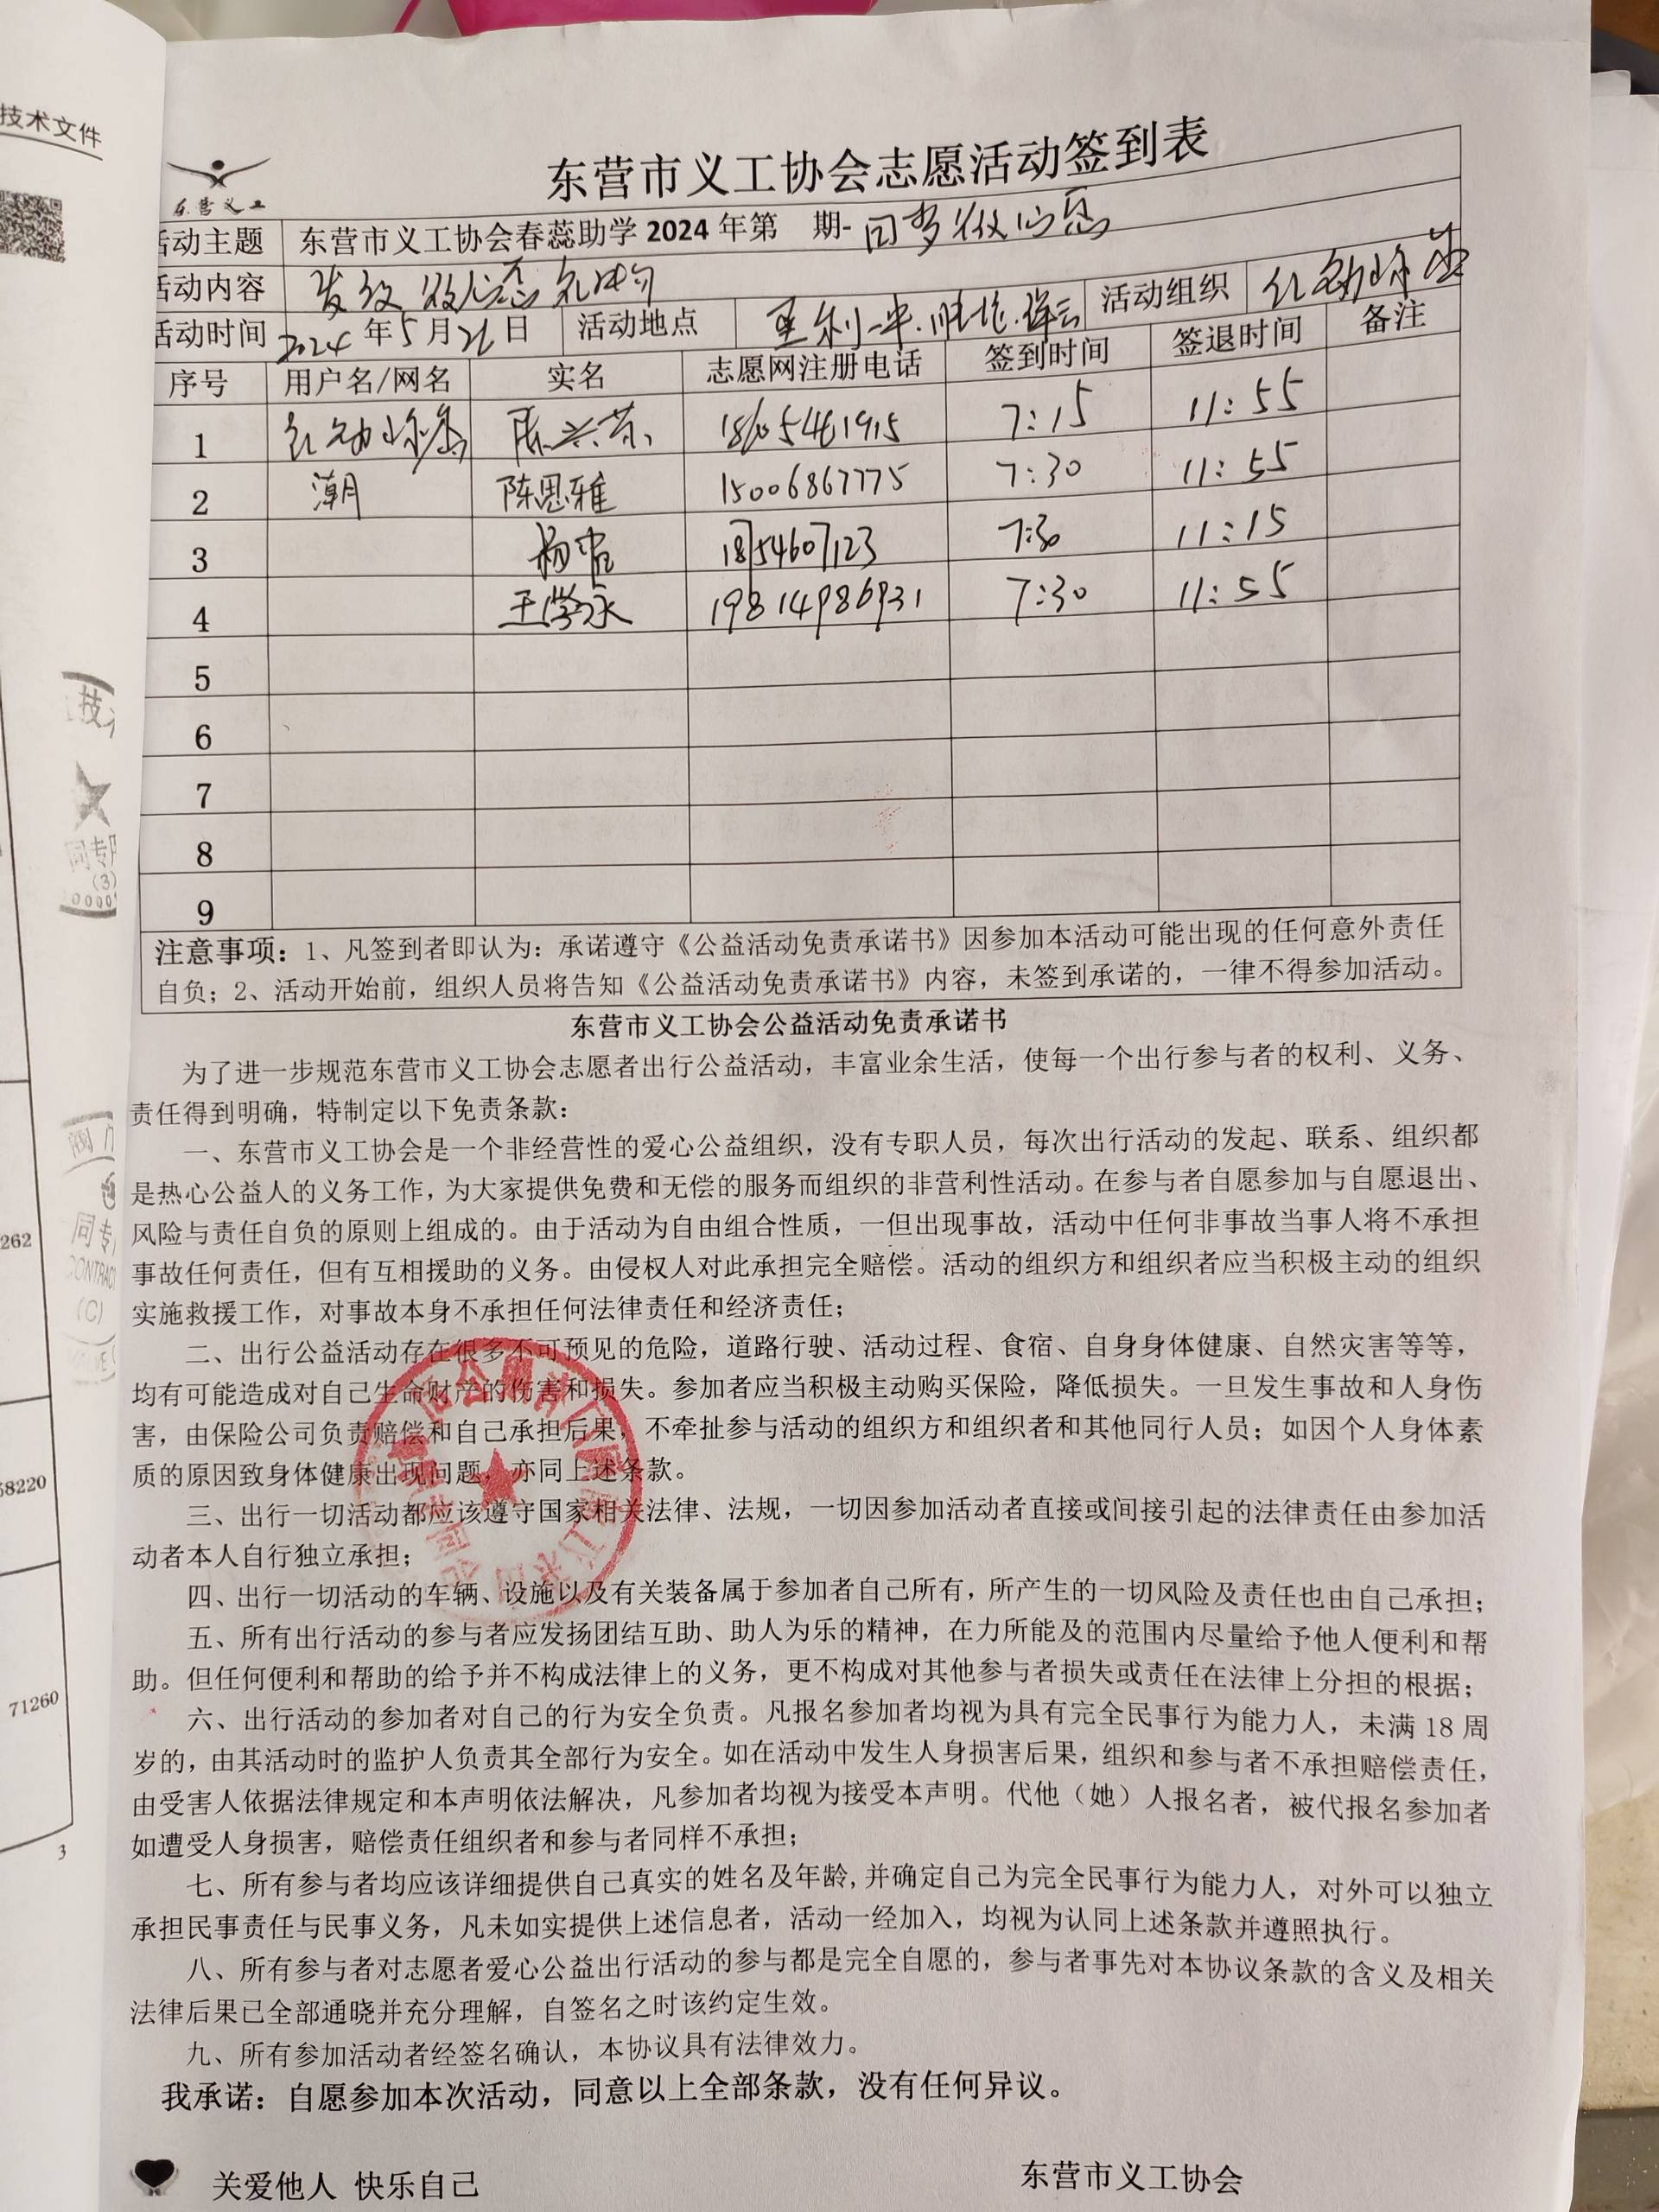 技术文件
东营义工
东营市义工协会志愿活动签到表
活动主题 东营市义工协会春蕊助学 2024 年第 期-
活动内容 发放
活动时间 2024 年 5 月 26 日 活动地点 活动组织
序号 用户名/网名 实名 志愿网注册电话 签到时间 签退时间 备注
1 7:15 11:55
2 潮 陈思雅 15006867775 7:30 11:55
3 7:30 11:15
4 王学永 19814986931 7:30 11:55
5
6
7
8
9
注意事项：1、凡签到者即认为：承诺遵守《公益活动免责承诺书》因参加本活动可能出现的任何意外责任
自负；2、活动开始前，组织人员将告知《公益活动免责承诺书》内容，未签到承诺的，一律不得参加活动。
东营市义工协会公益活动免责承诺书
为了进一步规范东营市义工协会志愿者出行公益活动，丰富业余生活，使每一个出行参与者的权利、义务、
责任得到明确，特制定以下免责条款：
一、东营市义工协会是一个非经营性的爱心公益组织，没有专职人员，每次出行活动的发起、联系、组织都
是热心公益人的义务工作，为大家提供免费和无偿的服务而组织的非营利性活动。在参与者自愿参加与自愿退出、
风险与责任自负的原则上组成的。由于活动为自由组合性质，一但出现事故，活动中任何非事故当事人将不承担
事故任何责任，但有互相援助的义务。由侵权人对此承担完全赔偿。活动的组织方和组织者应当积极主动的组织
实施救援工作，对事故本身不承担任何法律责任和经济责任；
二、出行公益活动存在很多不可预见的危险，道路行驶、活动过程、食宿、自身身体健康、自然灾害等等，
均有可能造成对自己生命财产的伤害和损失。参加者应当积极主动购买保险，降低损失。一旦发生事故和人身伤
害，由保险公司负责赔偿和自己承担后果，不牵扯参与活动的组织方和组织者和其他同行人员；如因个人身体素
质的原因致身体健康出现问题，亦同上述条款。
三、出行一切活动都应该遵守国家相关法律、法规，一切因参加活动者直接或间接引起的法律责任由参加活
动者本人自行独立承担；
四、出行一切活动的车辆、设施以及有关装备属于参加者自己所有，所产生的一切风险及责任也由自己承担；
五、所有出行活动的参与者应发扬团结互助、助人为乐的精神，在力所能及的范围内尽量给予他人便利和帮
助。但任何便利和帮助的给予并不构成法律上的义务，更不构成对其他参与者损失或责任在法律上分担的根据；
六、出行活动的参加者对自己的行为安全负责。凡报名参加者均视为具有完全民事行为能力人，未满 18 周
岁的，由其活动时的监护人负责其全部行为安全。如在活动中发生人身损害后果，组织和参与者不承担赔偿责任，
由受害人依据法律规定和本声明依法解决，凡参加者均视为接受本声明。代他（她）人报名者，被代报名参加者
如遭受人身损害，赔偿责任组织者和参与者同样不承担；
七、所有参与者均应该详细提供自己真实的姓名及年龄,并确定自己为完全民事行为能力人，对外可以独立
承担民事责任与民事义务，凡未如实提供上述信息者，活动一经加入，均视为认同上述条款并遵照执行。
八、所有参与者对志愿者爱心公益出行活动的参与都是完全自愿的，参与者事先对本协议条款的含义及相关
法律后果已全部通晓并充分理解，自签名之时该约定生效。
九、所有参加活动者经签名确认，本协议具有法律效力。
我承诺：自愿参加本次活动，同意以上全部条款，没有任何异议。
关爱他人 快乐自己 东营市义工协会
262
58220
71260
3